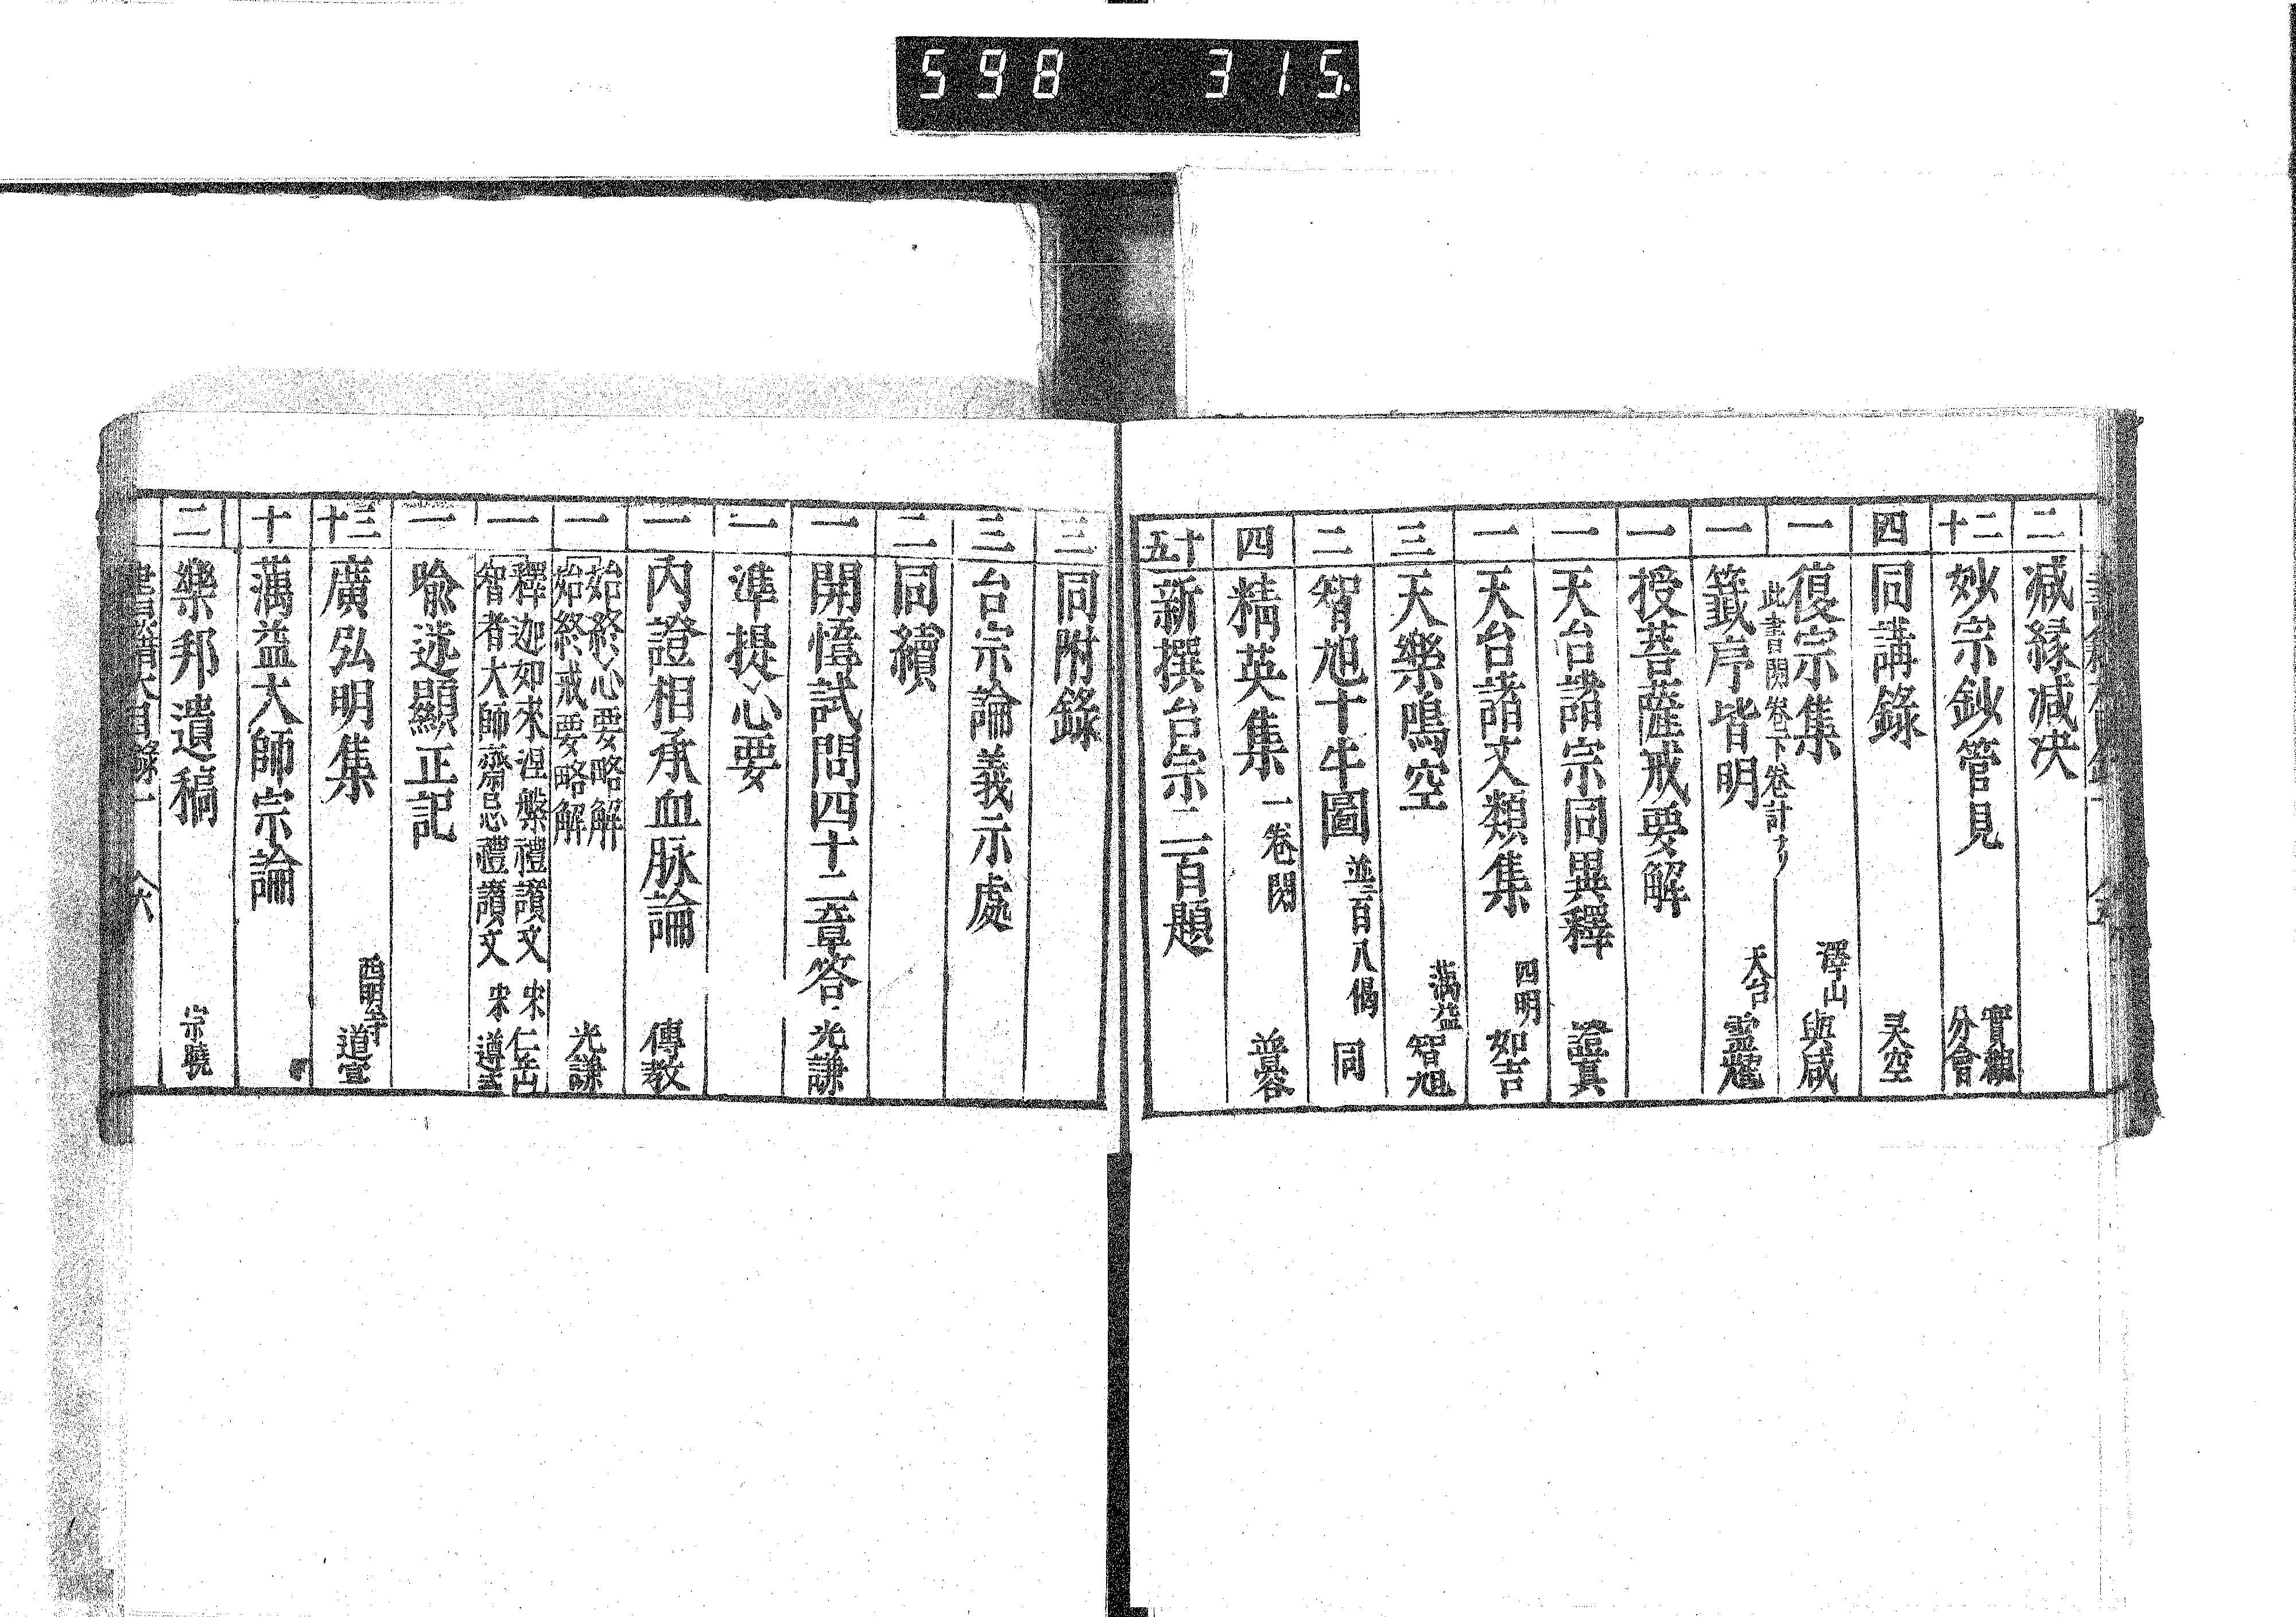 598 315.
二 減縁減决
二十 妙宗鈔管見 實觀 分會
四 同講錄 灵空
一 復宗集 澤山 與咸
此書開卷下卷計ナリ
一 籖序皆明 天台 霊耀
一 授菩薩戒要解
一 天台諸宗同異釋 證真
一 天台諸文類集 四明 如吉
三 天樂鳴空 蕅益 智旭
二 智旭十牛圖 並百八偈 同
四 精英集 一卷閃 普容
十五 新撰台宗二百題
三 同附錄
三 台宗論義示處
二 同續
一 開惽試問四十二章答 光謙
一 準提心要
一 内證相承血脉論 傳教
一 始終心要略解
始終戒要略解 光謙
一 釋迦如來涅槃禮讚文 宋 仁岳
智者大師齋忌禮讚文 宋 遵式
一 喩迷顯正記
三十 廣弘明集 西明寺 道宣
十 蕅益大師宗論
二 樂邦遺稿 宗曉